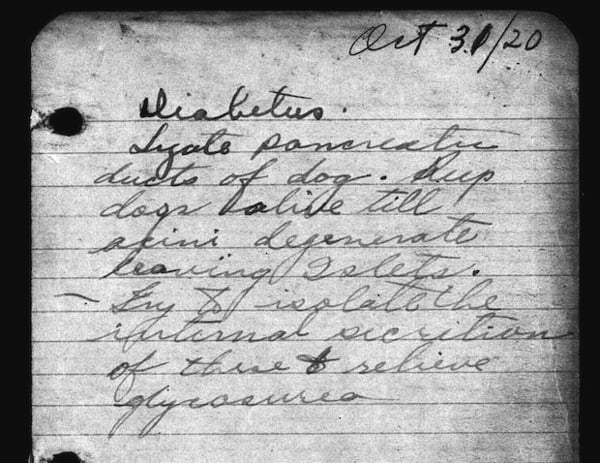 Oct 31/20
Diabetus.
Ligate pancreatic
ducts of dog. Keep
dogs alive till
acini degenerate
leaving Islets.
- Try to isolate the
internal secretion
of these & relieve
glycosurea